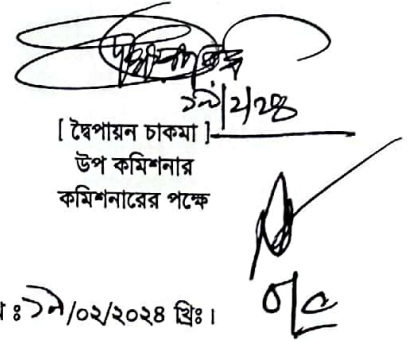 ১৯/২/২৪
[ দ্বৈপায়ন চাকমা ]
উপ কমিশনার
কমিশনারের পক্ষে
ঃ ১৯/০২/২০২৪ খ্রিঃ।